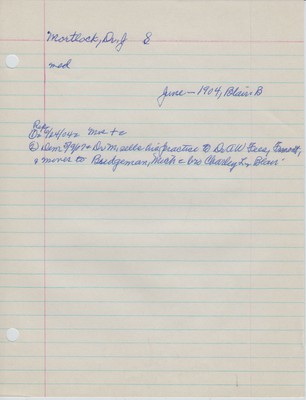 Mortlock, Dr. J E
med
June - 1904, Blair B
Refs
① 6/24/04: Mov + c
② Dem 5/9/07: Dr M, sells his practise to Dr AW
& moves to Bridgeman, Mich c bro Charley L, Blair